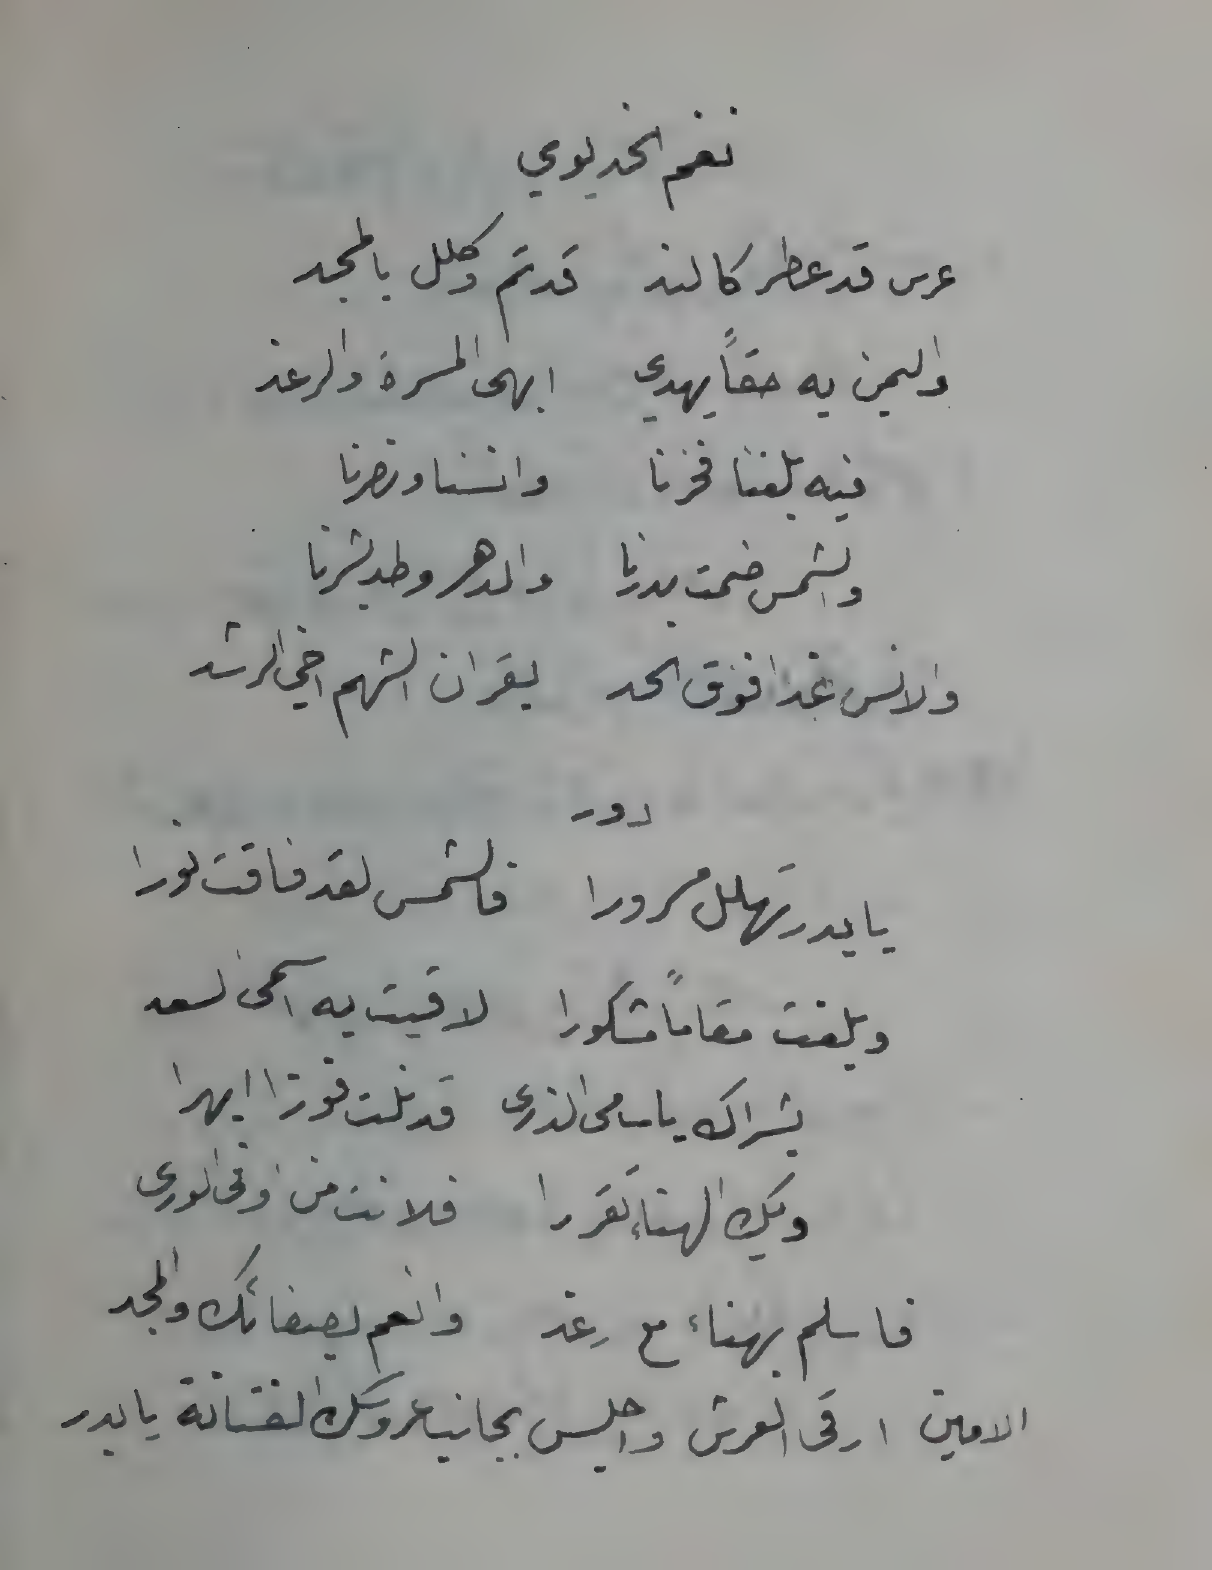 نغم الخديوي
عرس قد عطر كالند قد تم وكلل بالمجد
واليمن به حقاً يهدي ابهى المسرة والرغد
فيه بلغنا فخرنا وانسنا ونصرنا
والشمس ضمت بدرنا والدهر وطد بشرنا
والانس غدا فوق الحد بقران الشهم اخي الرشد
دور
يا بدر تهلل مسرورا فالشمس لقد فاقت نورا
وبلغت مقاماً مشكورا لاقيت به اسمى السعد
بشراك يا سامى الذرى قد نلت فوزا ابهرا
وبك الهناء تقررا فلانت من اوفى الورى
فاسلم بهناء مع رغد وانعم بصفائك والمجد
الامين ارقى العرش واجلس بجانب عروسك الفتانة يا بدر